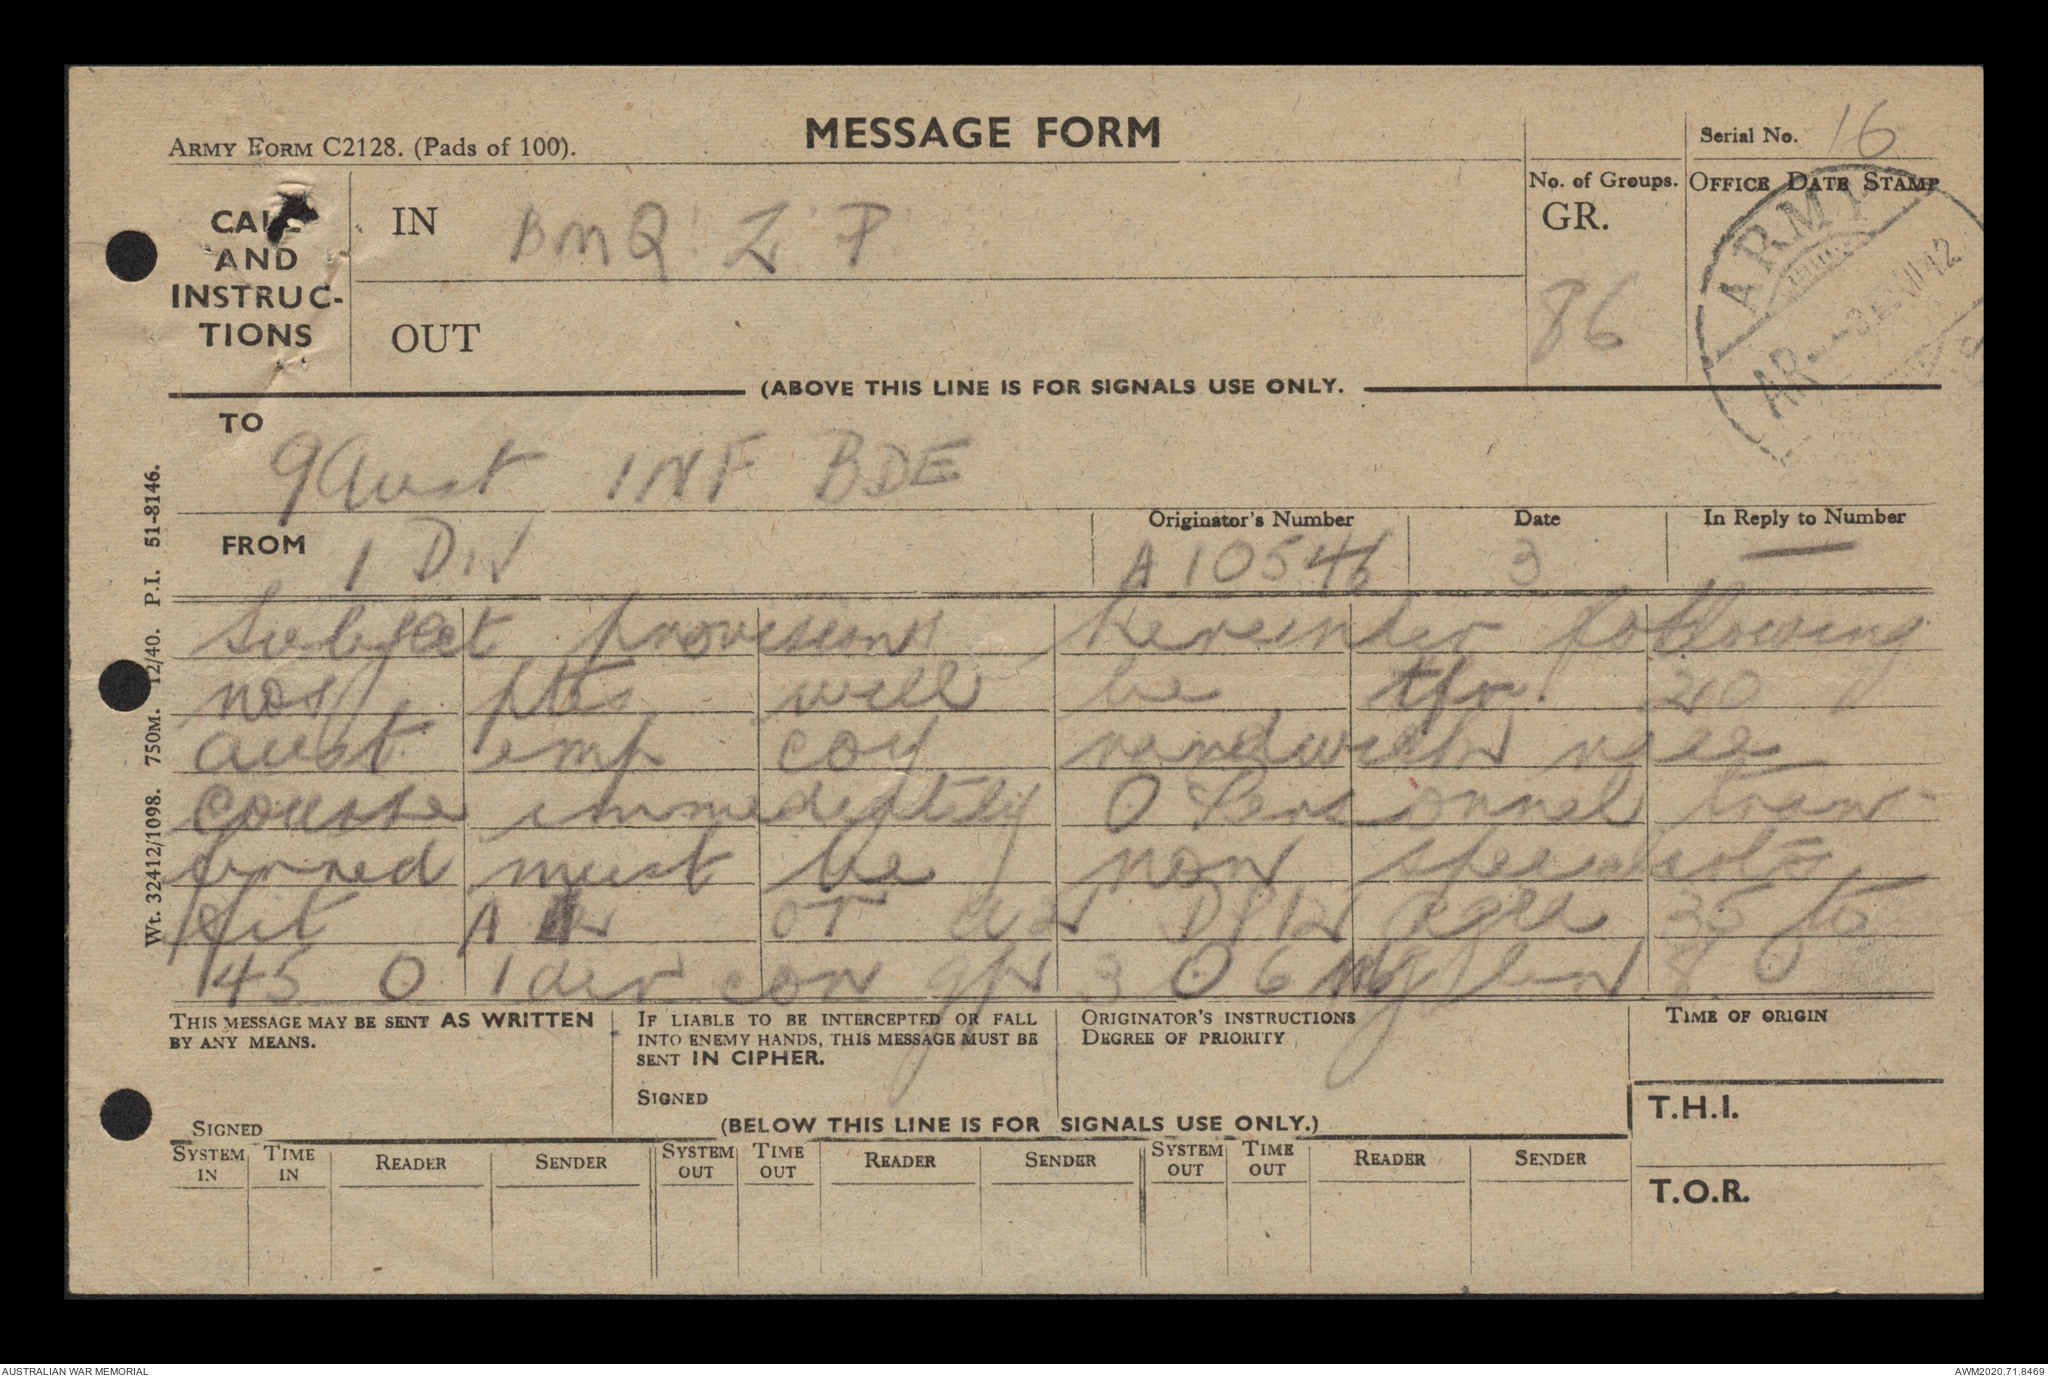 Army Form C2128. (Pads of 100).
MESSAGE FORM
Serial No. 16
CALL AND INSTRUC-TIONS
IN BMQ Z P
OUT
No. of Groups.
GR.
86
OFFICE DATE STAMP
ARMY
(ABOVE THIS LINE IS FOR SIGNALS USE ONLY.
TO
9 Aust INF BDE
FROM 1 Div
Originator's Number
A10546
Date
3
In Reply to Number
—
Subject provisions hereunder following
nos ptes will be tfr. 20
aust emp coy randwick race
course immediately O Personnel trans-
ferred must be non specialists
fit A or aged 35 to
45 O 1 div con 3 O 8
Wt. 32412/1098. 750M. 12/40. P.I. 51-8146.
THIS MESSAGE MAY BE SENT AS WRITTEN
BY ANY MEANS.
SIGNED
IF LIABLE TO BE INTERCEPTED OR FALL
INTO ENEMY HANDS, THIS MESSAGE MUST BE
SENT IN CIPHER.
SIGNED
ORIGINATOR'S INSTRUCTIONS
DEGREE OF PRIORITY
TIME OF ORIGIN
T.H.I.
T.O.R.
(BELOW THIS LINE IS FOR SIGNALS USE ONLY.)
SYSTEM IN TIME IN READER SENDER SYSTEM OUT TIME OUT READER SENDER SYSTEM OUT TIME OUT READER SENDER
AUSTRALIAN WAR MEMORIAL
AWM2020.71.8469